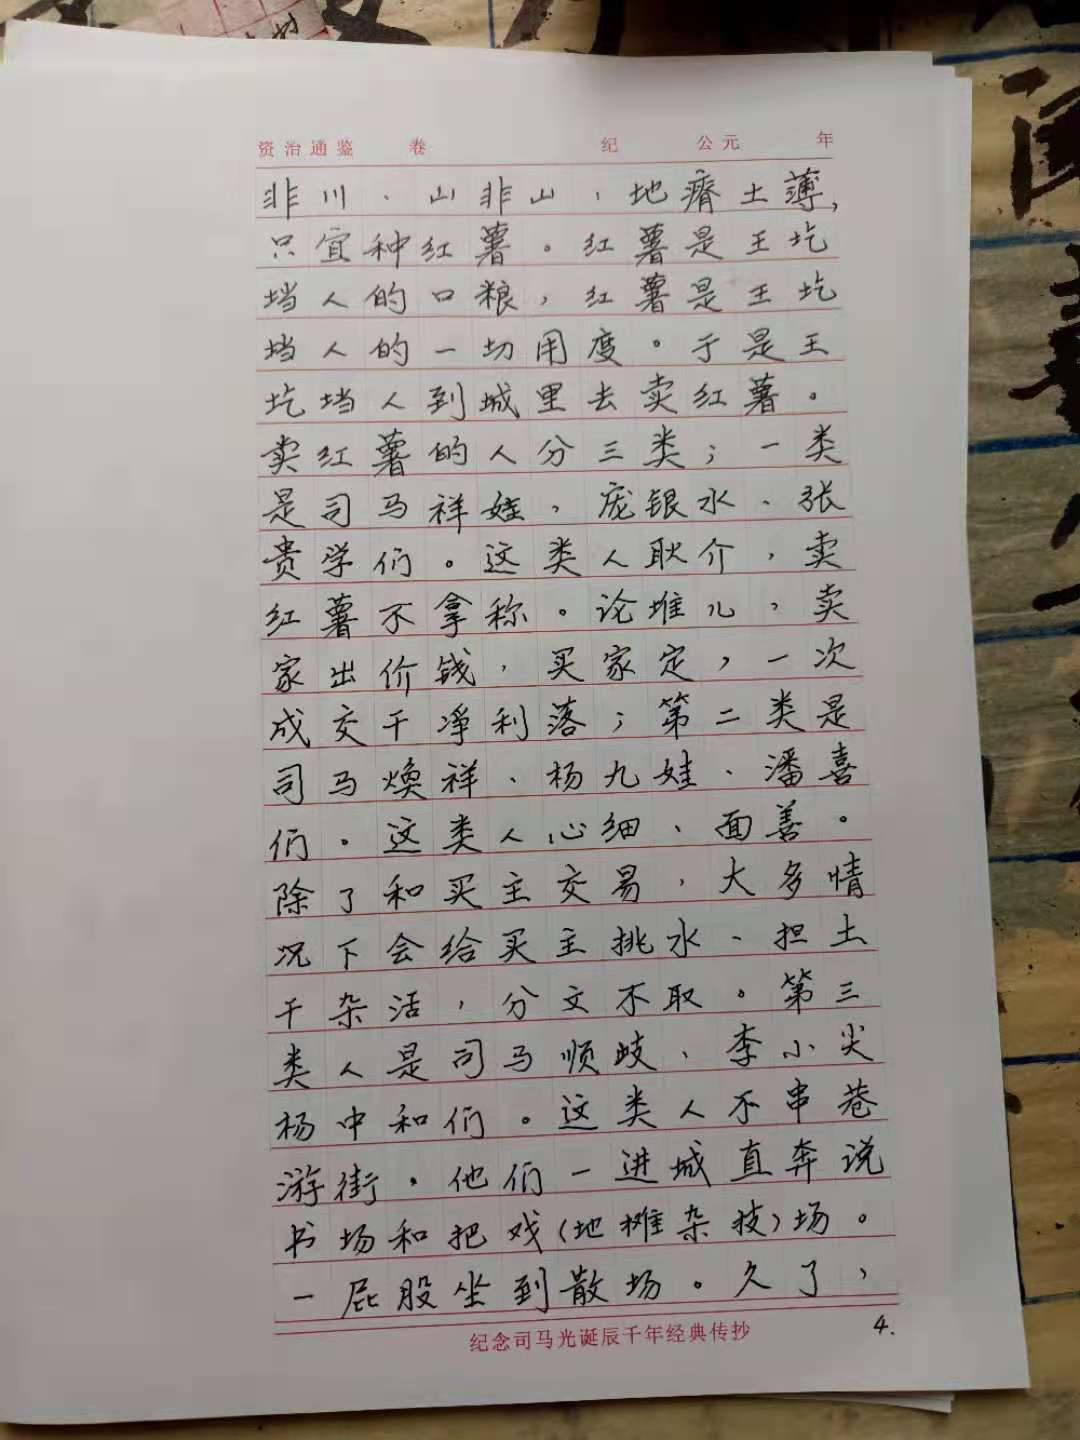 资治通鉴 卷 纪 公元 年
非川、山非山，地瘠土薄，
只宜种红薯。红薯是王圪
垱人的口粮，红薯是王圪
垱人的一切用度。于是王
圪垱人到城里去卖红薯。
卖红薯的人分三类；一类
是司马祥娃、庞银水、张
贵学们。这类人耿介，卖
红薯不拿称。论堆儿，卖
家出价钱，买家定，一次
成交干净利落；第二类是
司马焕祥、杨九娃、潘喜
们。这类人心细、面善。
除了和买主交易，大多情
况下会给买主挑水、担土
干杂活，分文不取。第三
类人是司马顺岐、李小尖
杨中和们。这类人不串巷
游街。他们一进城直奔说
书场和把戏(地摊杂技)场。
一屁股坐到散场。久了，
纪念司马光诞辰千年经典传抄
4.